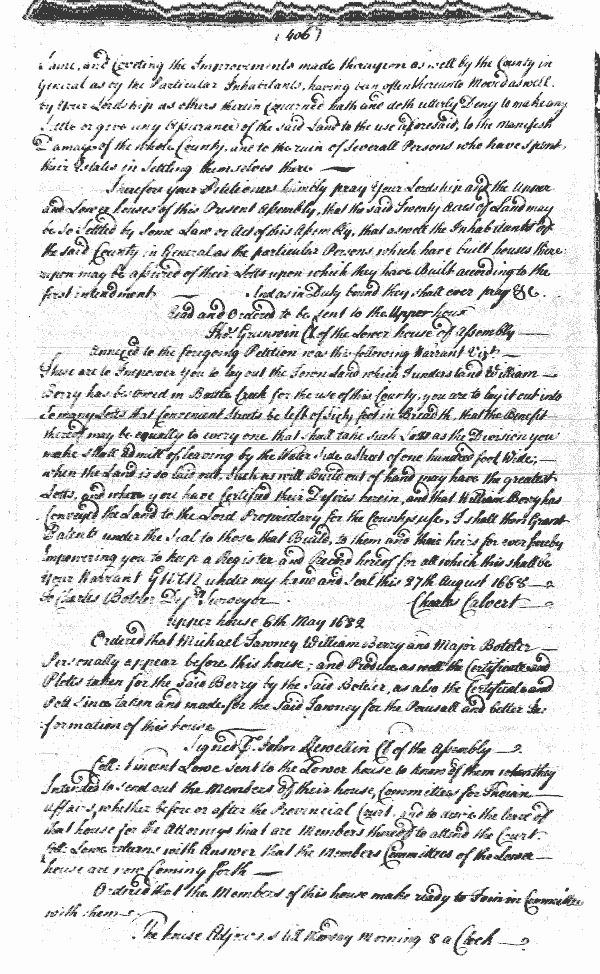 (406)
same, and Crediting the Improvements made thereupon as well by the County in
General as by the Particular Inhabitants, having been often thereunto Moved as well
by Your Lordship as others therein Concerned hath and doth utterly Deny to make any
Settle or give any Assurance of the said Land to the use aforesaid, to the manifest
Damage of the whole County, and to the ruin of Severall Persons who have Spent
their Estates in Settling themselves there
Therefore your Petitioners humbly pray Your Lordship and the Upper
and Lower houses of this Present Assembly, that the said Twenty Acres of Land may
be so Settled by Some Law or Act of this Assembly, that as well the Inhabitants of
the said County in General as the particular Persons which have built houses there
upon may be assured of their Lotts upon which they have Built according to the
first intendment And as in Duty bound they shall ever pray &c.
Read and Ordered to be Sent to the Upper house
Tho. Grunwin Cl of the Lower house of Assembly
Annexed to the foregoing Petition was this following Warrant Vizt
These are to Impower You to lay out the Town Land which I understand William
Berry has bestowed in Battle Creek for the use of this County, you are to lay it out into
so many Lotts that Convenient Streets be left of Sixty foot in Breadth, that the Benefit
thereof may be equally to every one that shall take Such Lotts as the Division you
make shall admitt of leaving by the Water Side a Street of one hundred foot Wide;
when the Land is so laid out, Such as will Build out of hand may have the greatest
Lotts, and where you have Certified their Desires herein, and that William Berry has
Conveyed the Land to the Lord Proprietary for the Countys use, I shall then Grant
Patents under the Seal to those that Build, to them and their heirs for ever hereby
Impowering you to keep a Register and Record hereof for all which this shall be
Your Warrant Given under my hand and Seal this 27th August 1668
To Charles Boteler Depty Surveyor Charles Calvert
Upper house 6th May 1682
Ordered that Michael Tawney William Berry and Major Boteler
Personally appear before this house; and Produce as well the Certificate and
Plotts taken for the Said Berry by the Said Boteler, as also the Certificate and
Plott Since taken and made for the Said Tawney for the Perusall and better In-
formation of this house
Signed John Llewellin Cl of the Assembly
Coll: Vincent Lowe sent to the Lower house to know of them when they
Intended to send out the Members of their house Committees for Indian
affairs, whether before or after the Provincial Court, and to desire the leave of
that house for the Attorneys that are Members thereof to attend the Court.
Coll. Lowe returns with Answer that the Members Committees of the Lower
house are now Coming forth
Ordered that the Members of this house make ready to Join in Committee
with them
The house Adjourns till Monday Morning 8 a Clock